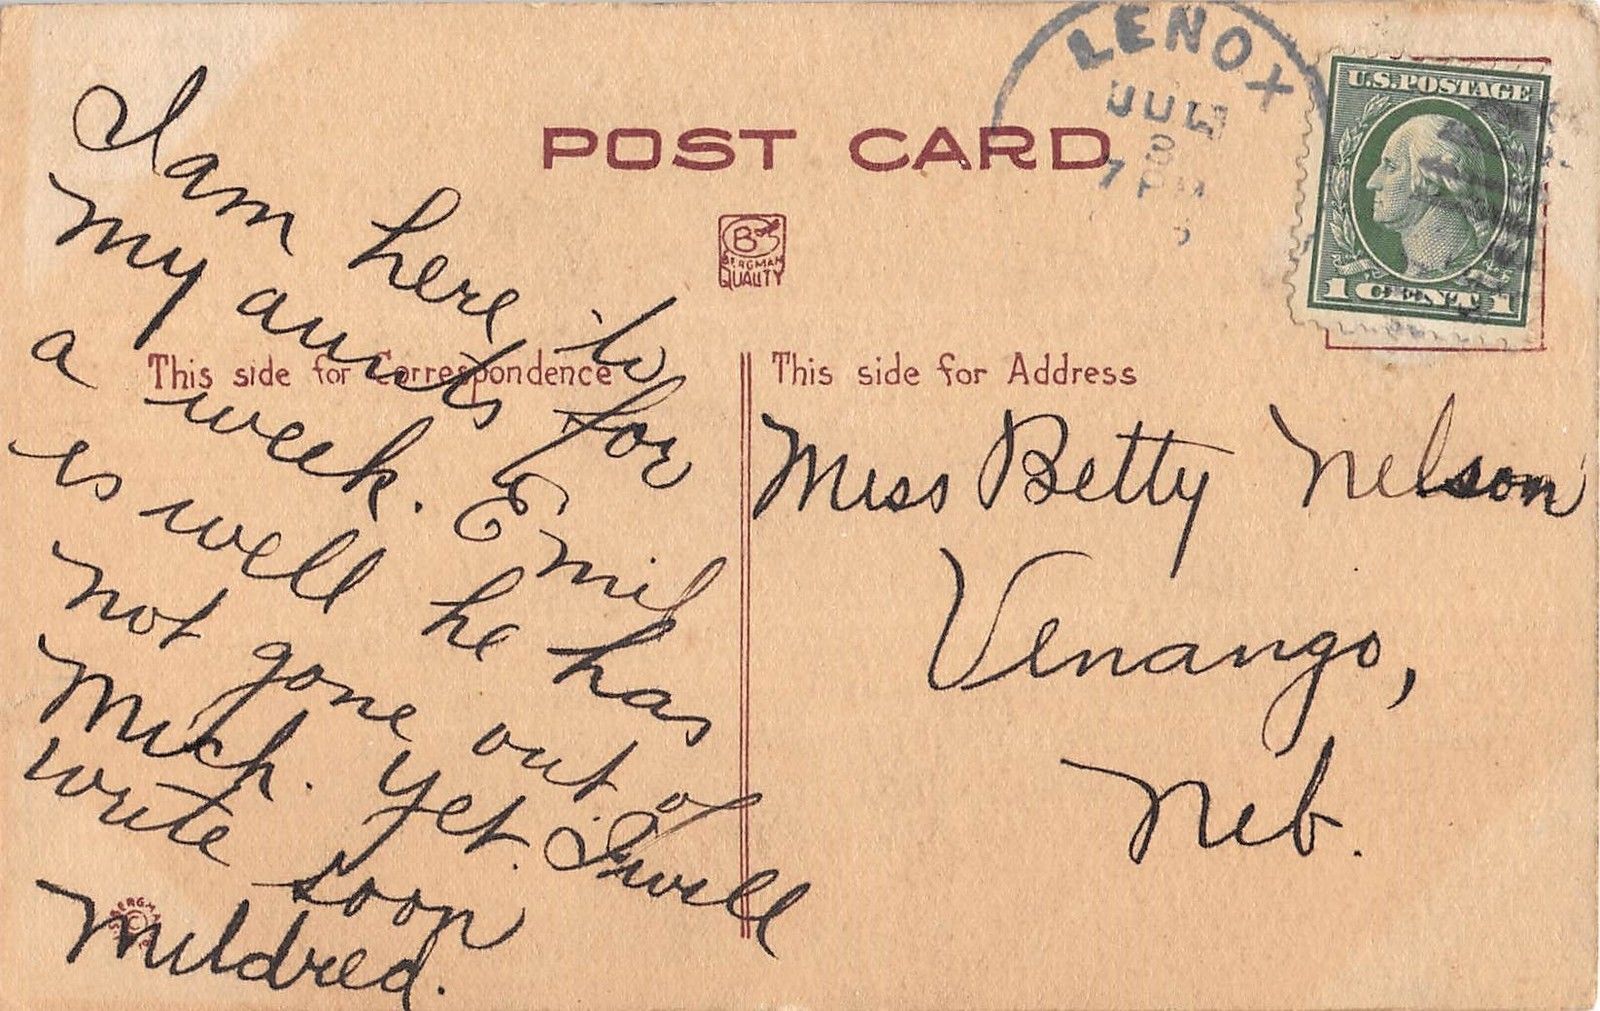 POST CARD
LENOX
JUL
3
7 P
U.S. POSTAGE
1 CENT 1
BS
BERGMAN
QUALITY
This side for Correspondence
I am here to
my aunts for
a week. Emil
is well he has
not gone out of
Mich. yet. I will
write soon
Mildred.
BERGMAN
©
This side for Address
Miss Betty Nelson
Venango,
Neb.